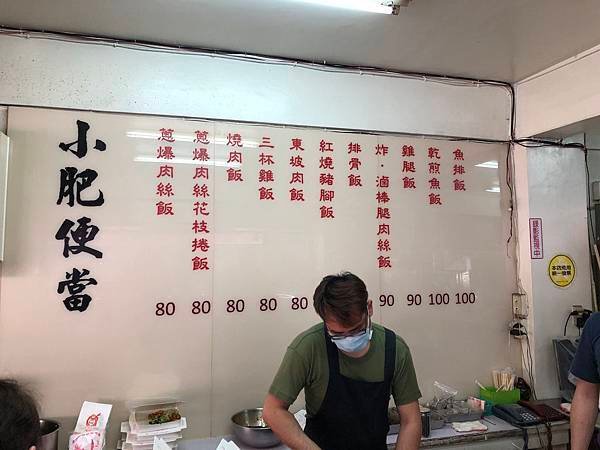 小肥便當
魚排飯 100
乾煎魚飯 100
雞腿飯 90
炸·滷棒腿肉絲飯 90
排骨飯
紅燒豬腳飯
東坡肉飯 80
三杯雞飯 80
燒肉飯 80
蔥爆肉絲花枝捲飯 80
蔥爆肉絲飯 80
錄影監視中